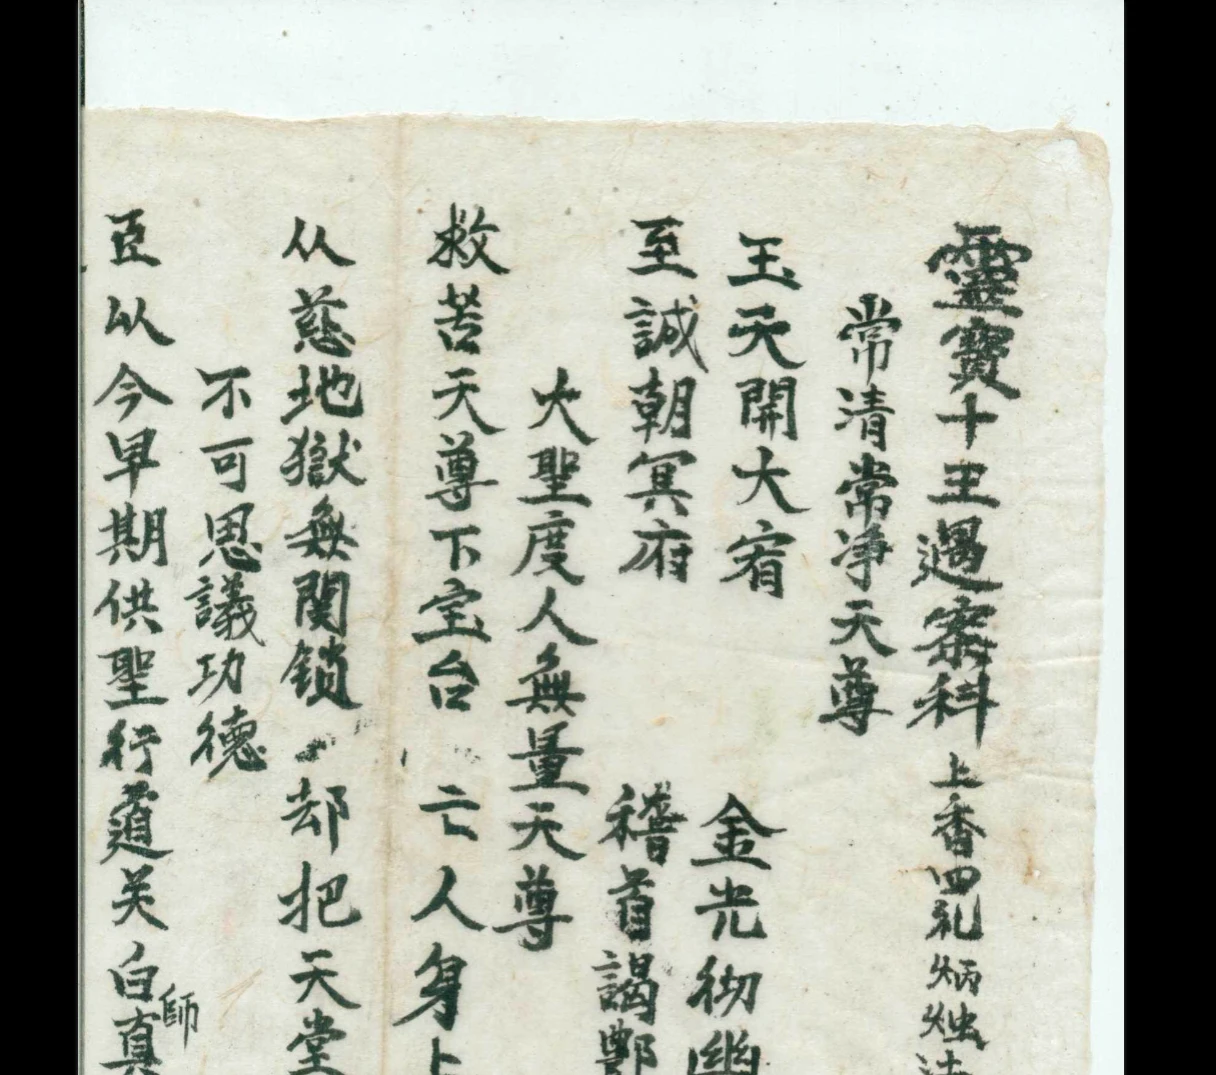 靈寶十王過案科 上香四礼 炳烛
常清常净天尊
玉天開大宥 金光彻幽
至誠朝冥府 稽首謁酆
大聖度人無量天尊
救苦天尊下宝台 亡人身上
从慈地獄無関鎖 却把天堂
不可思議功德
臣从今早期供聖行道关白真
師